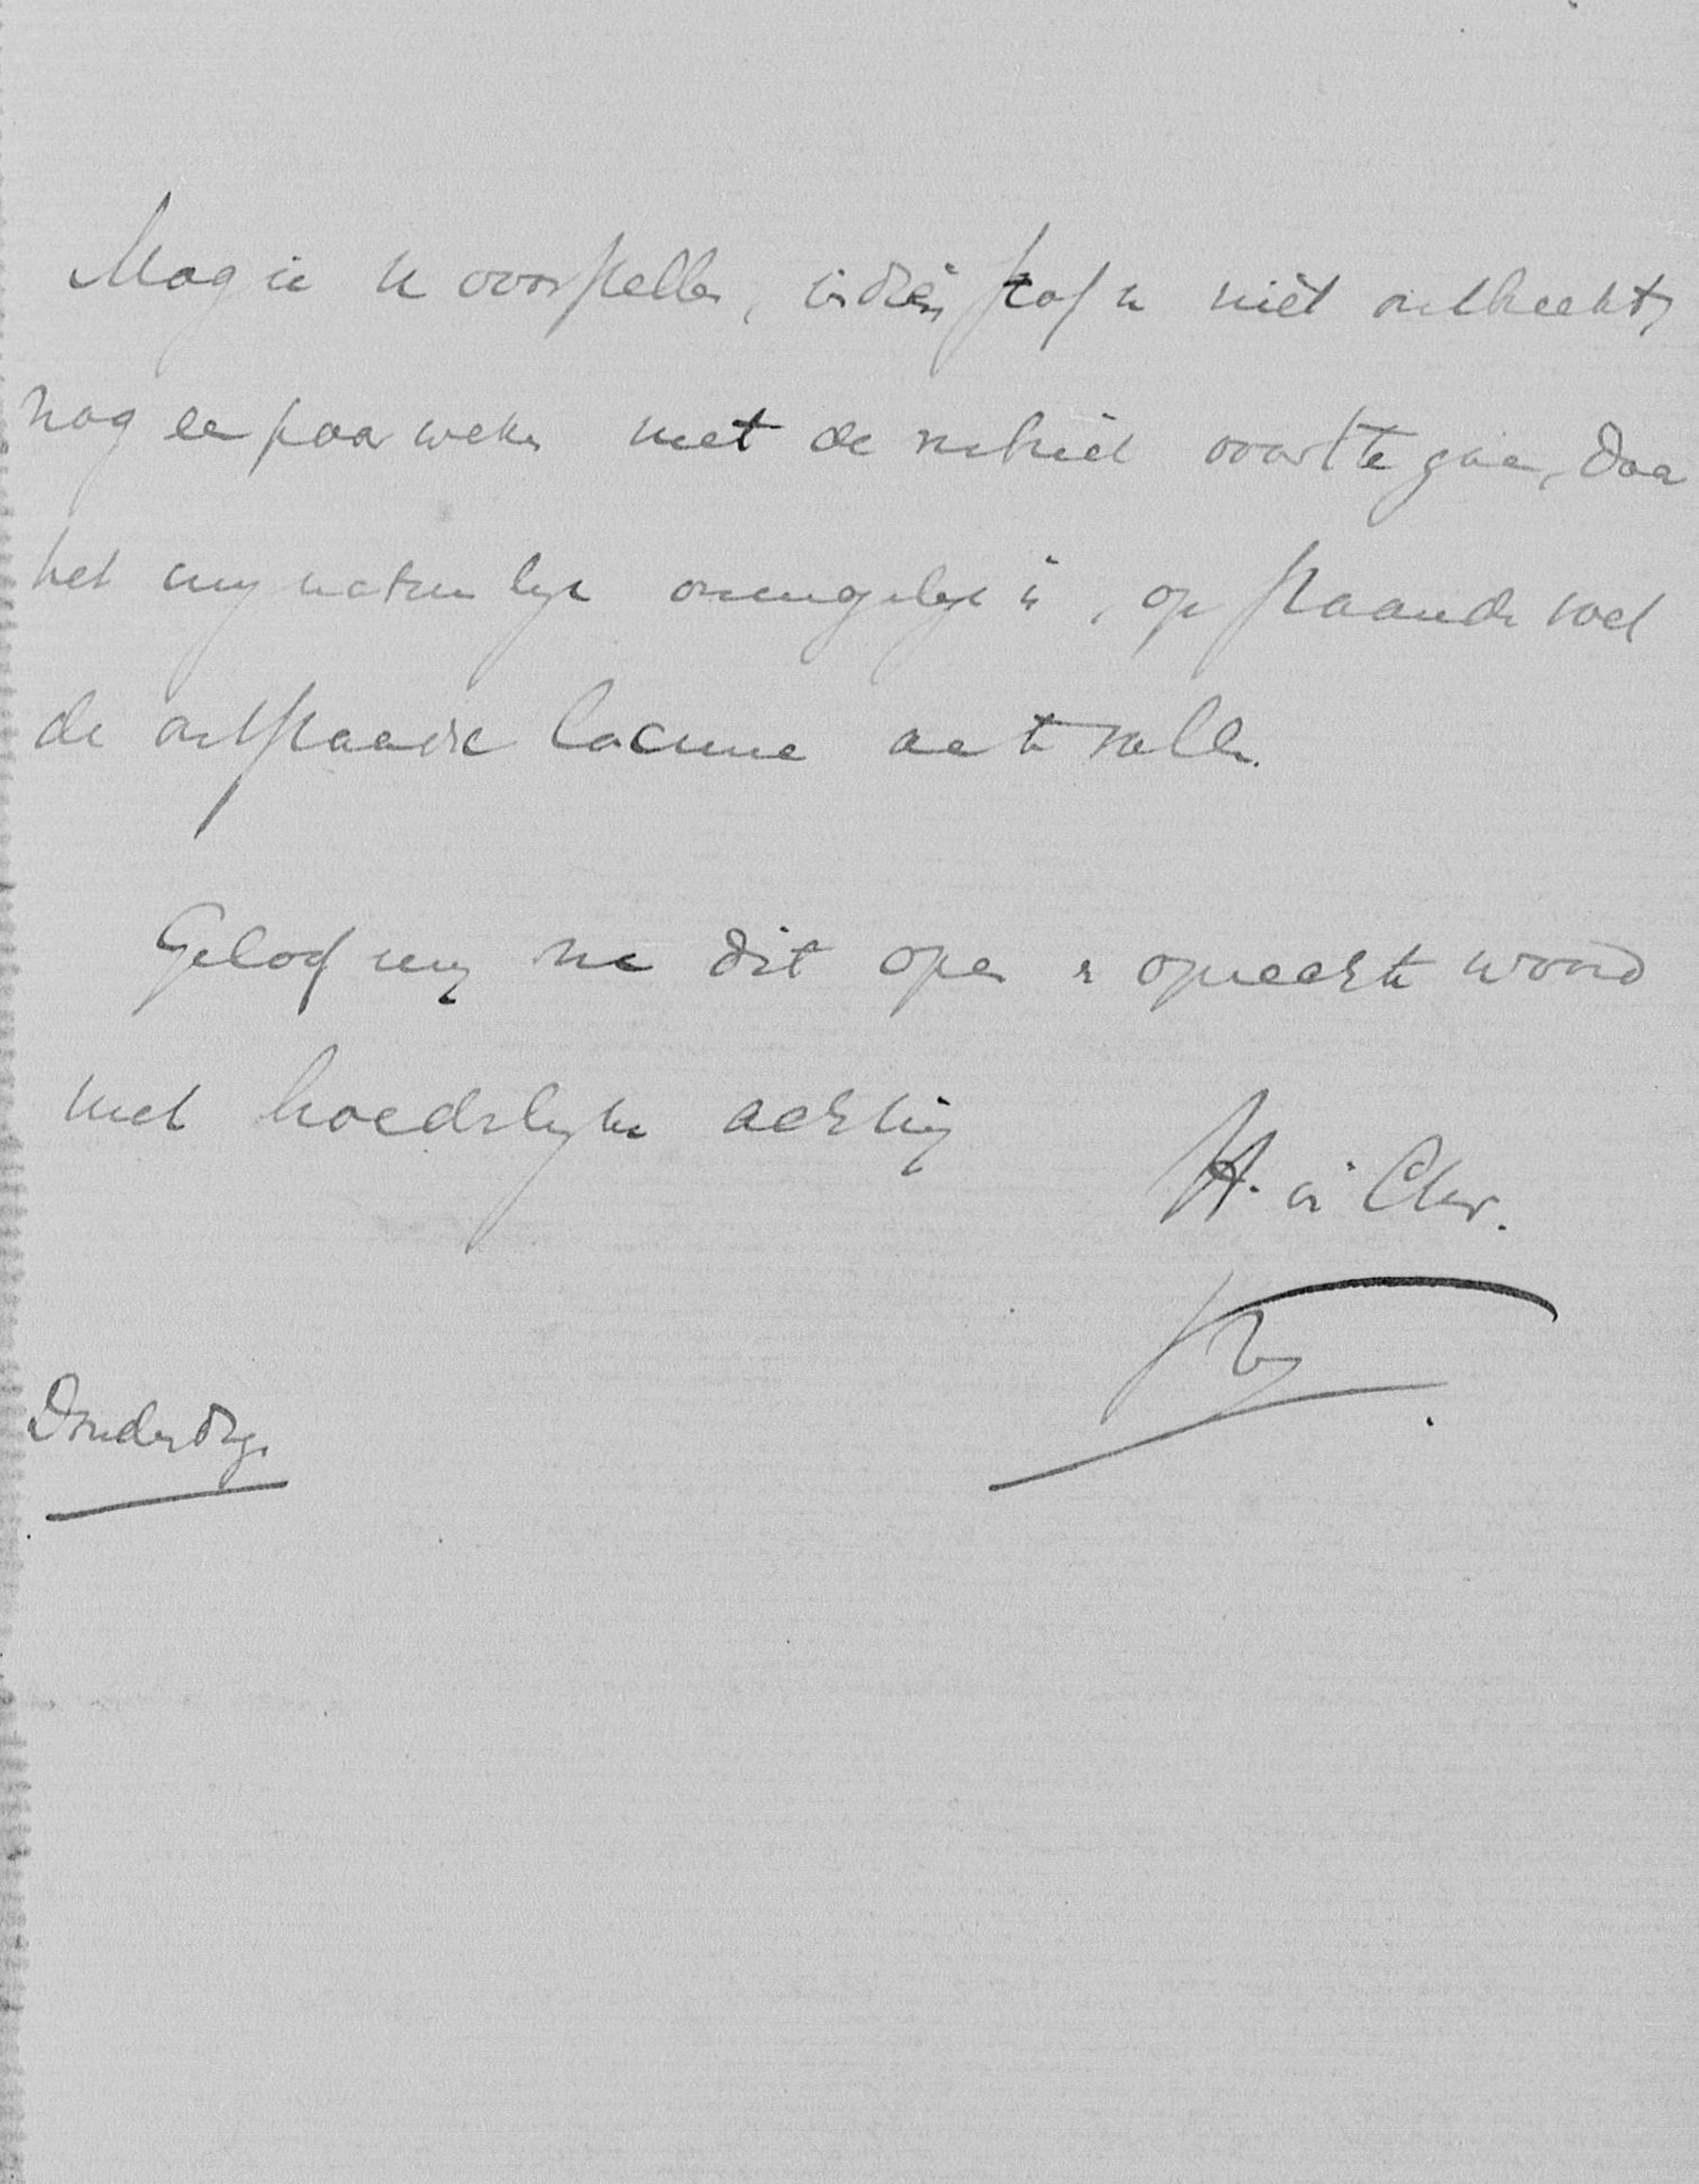 Mag ik u voorstellen, indien stof u niet ontbreekt,
nog een paar weken met de rubriek voort te gaan, daar
het mij natuurlijk onmogelijk is, op staande voet
de ontstaande lacune aan te vullen.
Geloof mij na dit open en oprecht woord
met broederlijke achting
Uw. in Chr.
Donderdag.